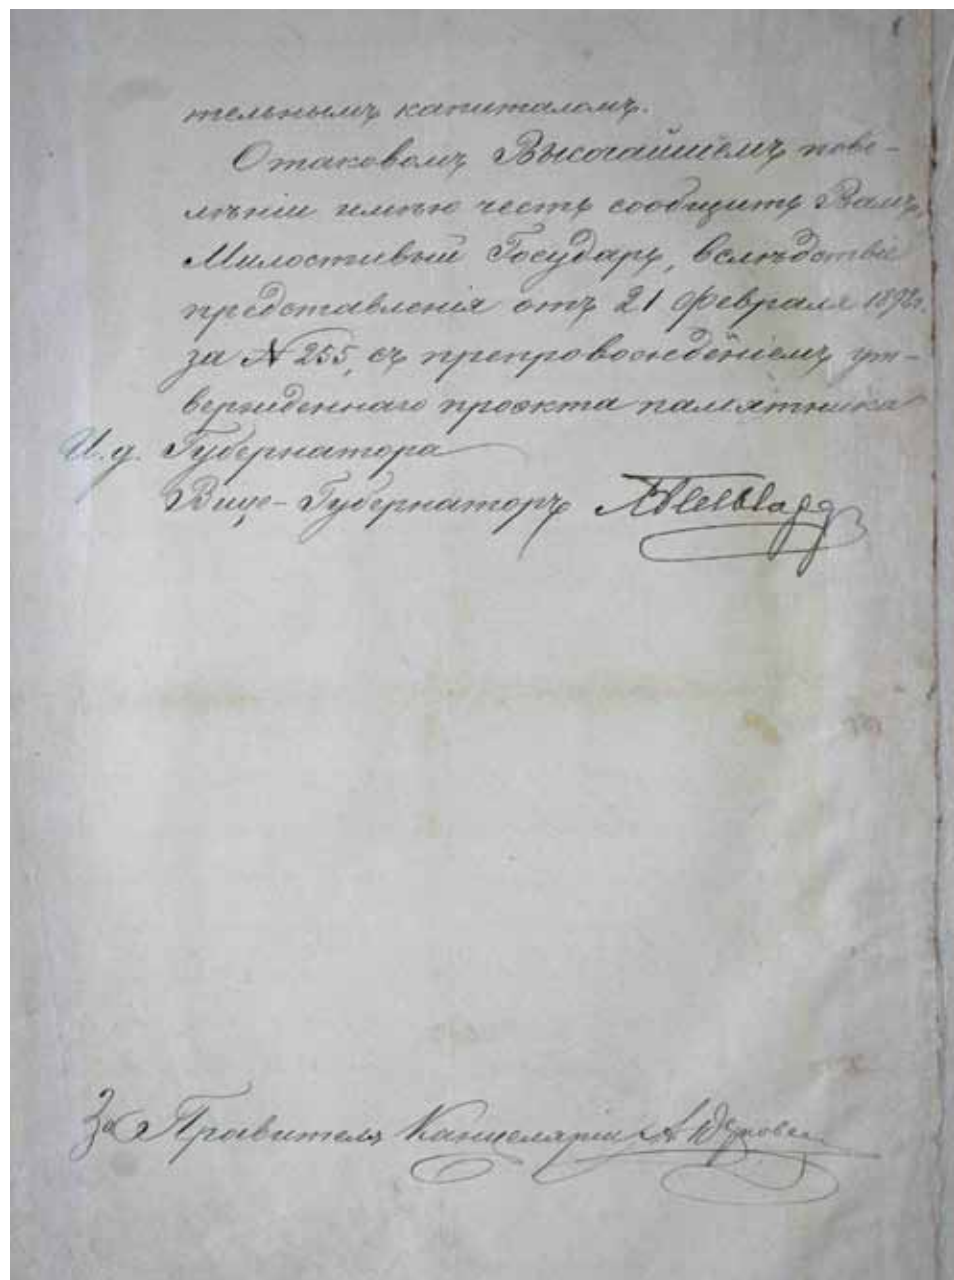 тельнымъ капиталомъ.
О таковомъ Высочайшемъ пове-
лѣніи имѣю честь сообщить Вамъ,
Милостивый Государь, вслѣдствіе
представленія отъ 21 февраля
за № 255, съ препровожденіемъ ут-
вержденнаго проэкта памятника
И. д. Губернатора
Вице-Губернаторъ
За Правителя Канцеляріи